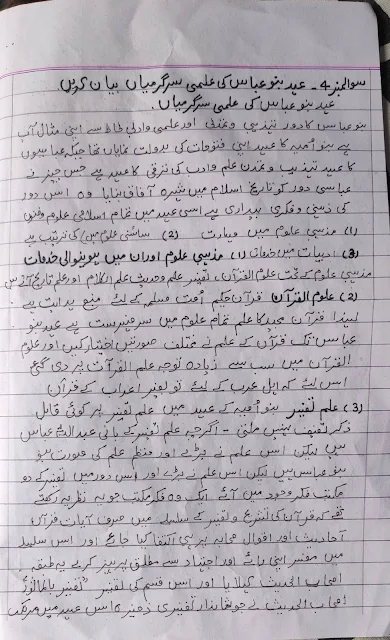 سوالنمبر 4 - عہد بنو عباس کی علمی سرگرمیاں بیان کریں
عہد بنو عباس کی علمی سرگرمیاں.
بنو عباس کا دور تہذیبی و تمدنی اور علمی و ادبی لحاظ سے اپنی مثال آپ
ہے بنو امیہ کا عہد اپنی فتوحات کی بدولت نمایاں تھا جبکہ عباسیوں
کا عہد تہذیب و تمدن علم و ادب کی ترقی کا عہد ہے جس چیز نے
عباسی دور کو تاریخ اسلام میں شہرہ آفاق بنایا وہ اس دور
کی ذہنی و فکری بیداری ہے اسی عہد میں تمام اسلامی علوم و فنون
(1) مذہبی علوم میں مہارت (2) سائنسی علوم میں کی ترتیب ہے
(3) ادبیات میں خدمات (1) مذہبی علوم اور ان میں ہونیوالی خدمات
مذہبی علوم کے تحت علوم القرآن، تفسیر علم وحدیث علم الکلام اور علم تاریخ آتے ہیں
(2) علوم القرآن قرآن حکیم امت مسلم کے لئے منبع ہدایت ہے
لہذا قرآن مجید کا علم تمام علوم میں سرفہرست ہے عہد بنو
عباس تک قرآن کے علم نے مختلف صورتیں اختیار کیں اور علوم
القرآن میں سب سے زیادہ توجہ علم القرآت پر دی گئی
اس لئے کہ اہل عرب کے لئے تو بغیر اعراب کے قرآن
(3) علم تفسیر بنو امیہ کے عہد میں علم تفسیر پر کوئی قابل
ذکر تصنیف نہیں ملتی - اگرچہ علم تفسیر کے بانی عبداللہ بن عباس
ہیں لیکن اس علم نے بڑے اور منظم علم کی صورت بنو
بنو عباس میں لیکن اس علم نے بڑے اور اس دور میں تفسیر کے دو
مکتب فکر وجود میں آئے ایک وہ فکر مکتب جو یہ نظریہ رکھتے
تھے کہ قرآن کی تشریح و تفسیر کے سلسلے میں صرف آیات قرآن،
احادیث اور اقوال صحابہ پر ہی اکتفا کیا جائے اور اس سلسلے
میں مفسر اپنی رائے اور اجتہاد سے مطلق پرہیز کرے یہ طبقہ
اصحاب الحدیث کہلایا اور اس قسم کی تفسیر "تفسیر بالماثور"
اصحاب الحدیث نے جو شاندار تفسیری ذخیرہ اس عہد میں مرتب